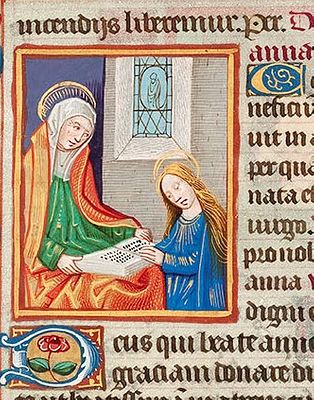 incendijs liberemur. Per. D
anna
neficiu
uit in a
per qua
nata e
uirgo.
pro nob
anna
digni
Deus qui beate anne
gratiam donare di